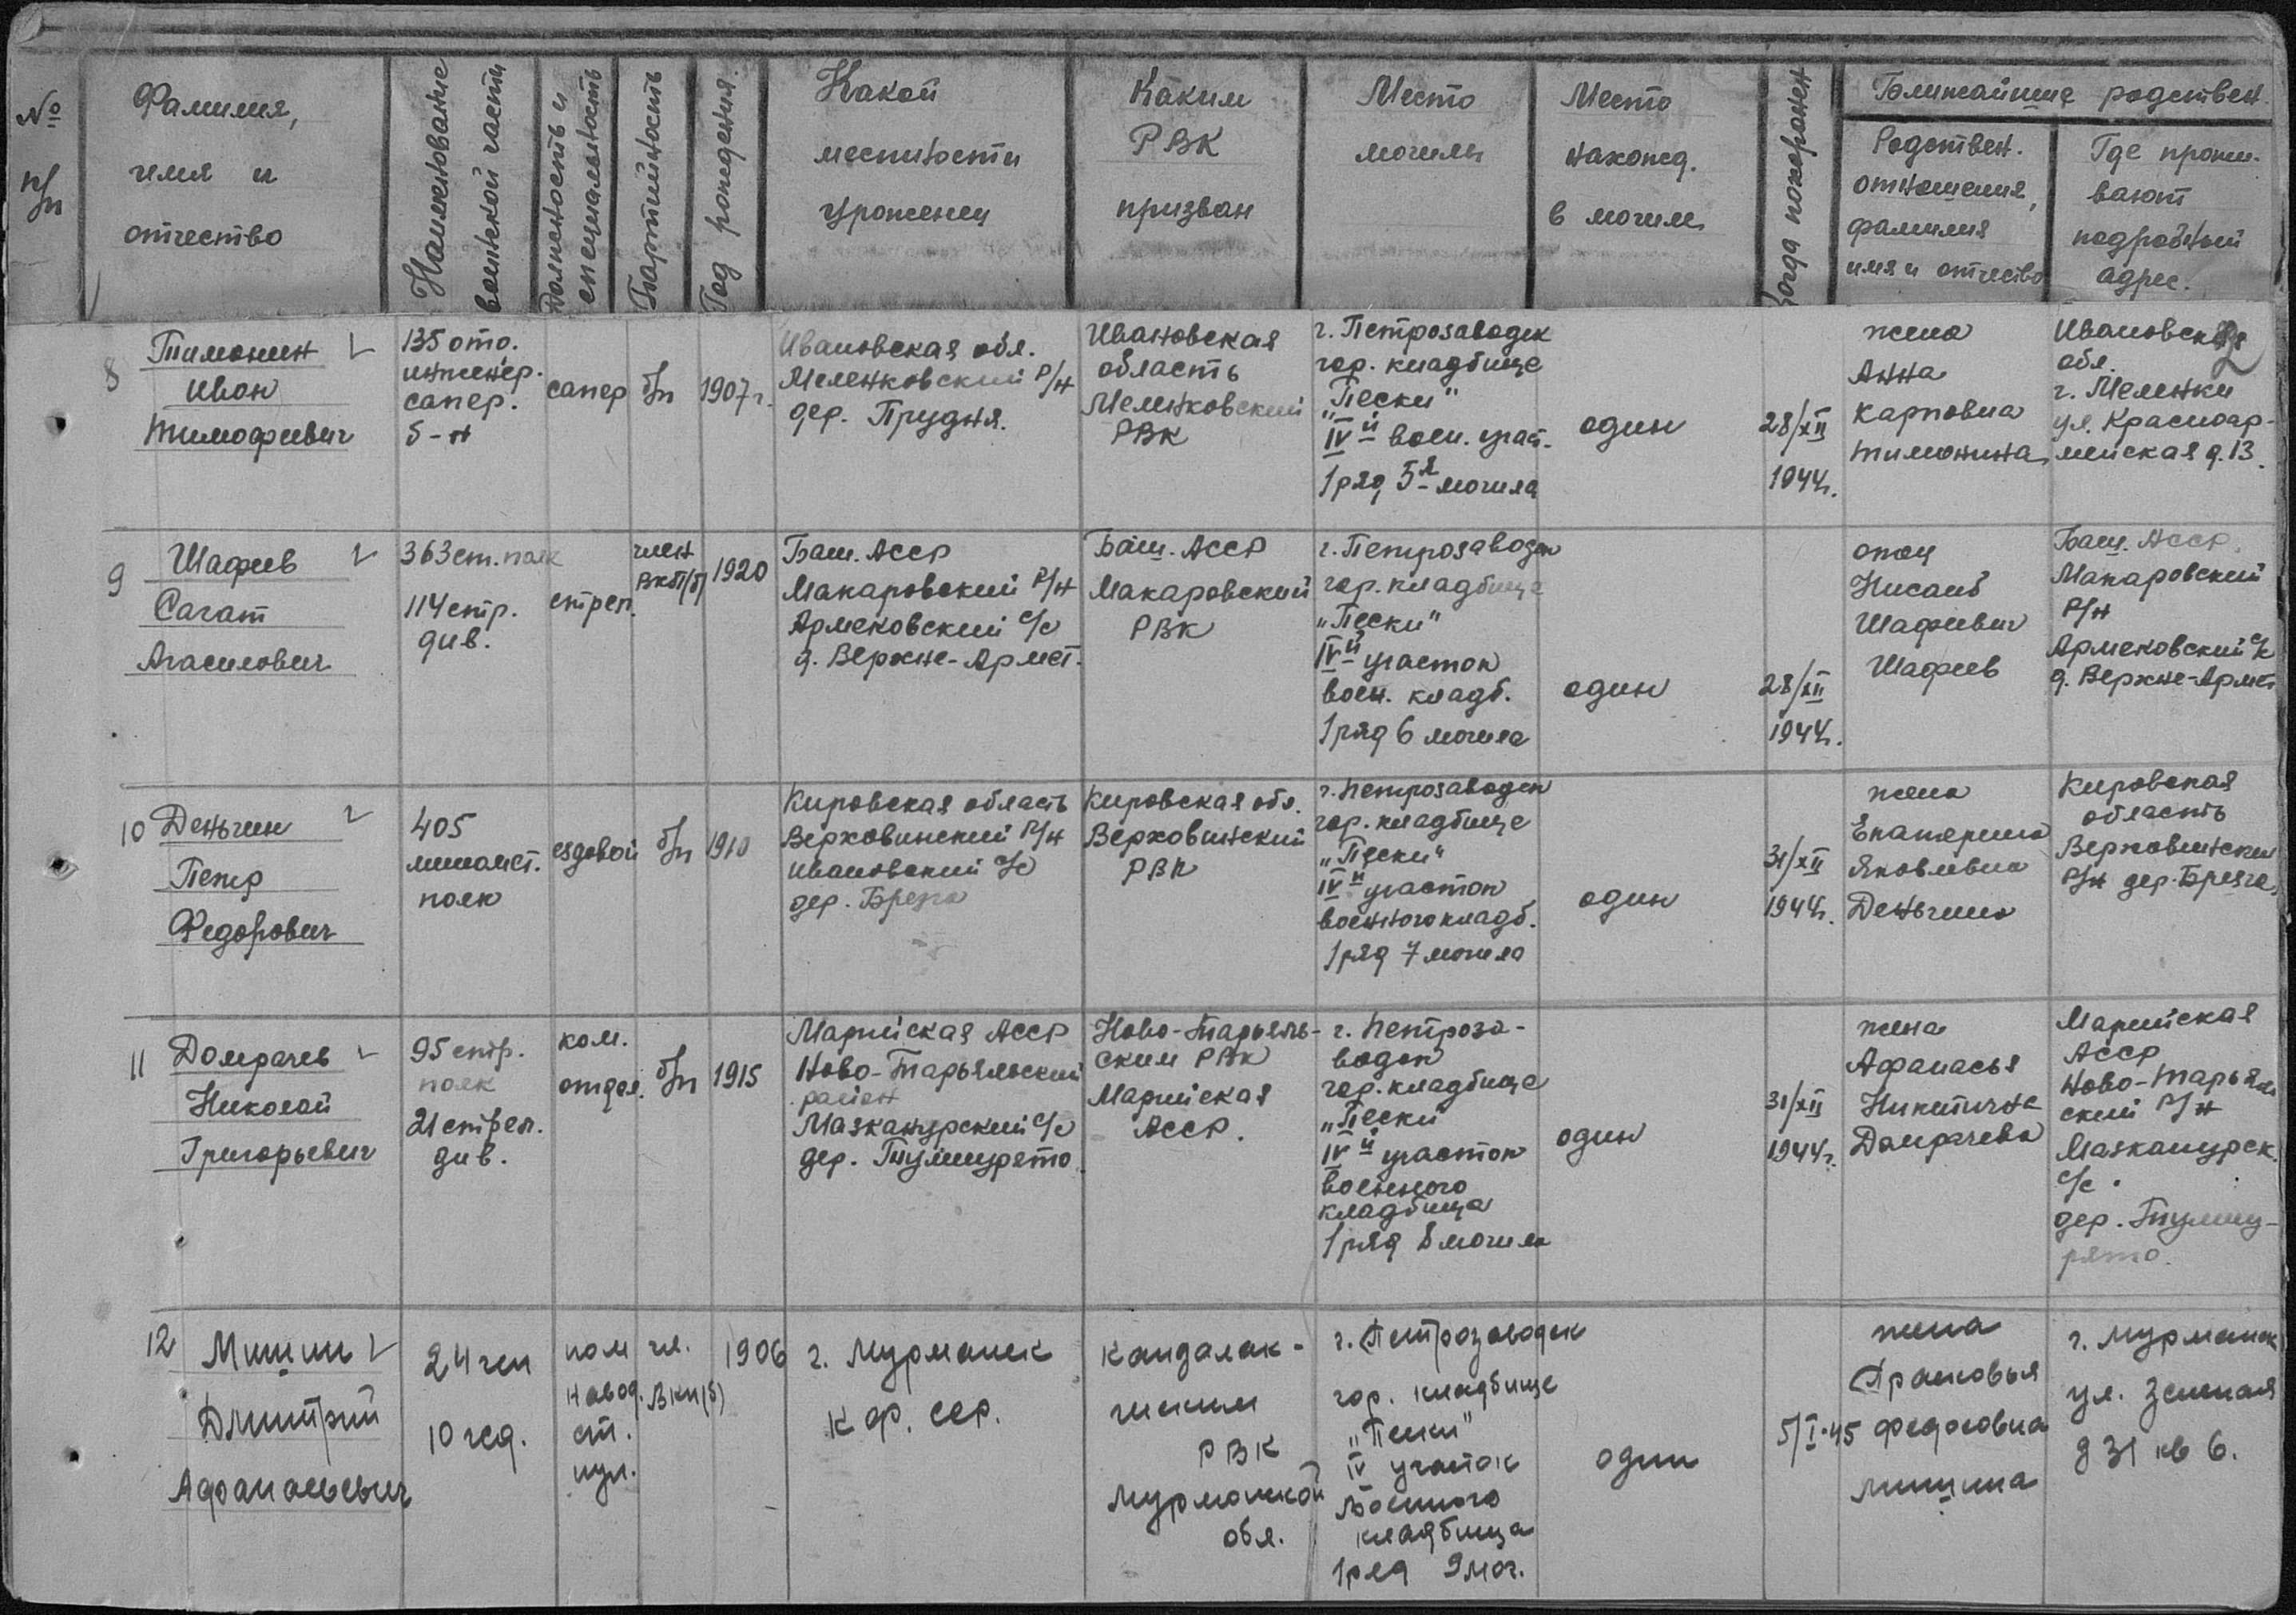 №
п/п
Фамилия,
имя и
отчество
Наименование
военской части
Должность и
специальность
Партийность
Год рождения.
Какой
местности
уроженец
Каким
РВК
призван
Место
могилы
Место
наход.
в могиле
Когда похоронен
Ближайшие родствен.
Родствен.
отношения,
фамилия
имя и отчество
Где прожи-
вают
подробный
адрес.
8
Тимонин
Иван
Тимофеевич
135 отд.
инженер.
сапер.
б-н
сапер
б/п
1907 г.
Ивановская обл.
Меленковский р/н
дер. Прудня.
Ивановская
область
Меленковский
РВК
г. Петрозаводск
гор. кладбище
"Пески"
IV й воен. участ.
1 ряд 5-я могила
один
28/XII
1944г.
жена
Анна
Карповна
Тимонина
Ивановская
обл.
г. Меленки
ул. Красноар-
мейская д. 13.
9
Шафеев
Сагат
Агасилович
363 ст. полк
114 стр.
див.
стрел.
член
ВКП/б/
1920
Баш. АССР
Макаровский р/н
Армековский с/с
д. Верхне-Армет.
Баш. АССР
Макаровский
РВК
г. Петрозаводск
гор. кладбище
"Пески"
IV й участок
воен. кладб.
1 ряд 6 могила
один
28/XII
1944г.
отец
Шафеевич
Шафеев
Баш. АССР.
Макаровский
р/н
Армековский с/с
д. Верхне-Армет
10
Деньгин
Петр
Федорович
405
миномет.
полк
ездовой
б/п
1910
Кировская область
Верховинский р/н
Ивановский с/с
дер. Брезга
Кировская обл.
Верховинский
РВК
г. Петрозаводск
гор. кладбище
"Пески"
IV й участок
военного кладб.
1 ряд 7 могила
один
31/XII
1944г.
жена
Екатерина
Яковлевна
Деньгина
Кировская
область
Верховинский
р/н дер. Брезга
11
Домрачев
Николай
Григорьевич
95 стр.
полк
21 стрел.
див.
ком.
отдел.
б/п
1915
Марийская АССР
Ново-Тарьяльский
район
Мазканурский с/с
дер. Тулимурято
Ново-Тарьяль-
ским РВК
Марийская
АССР.
г. Петроза-
водск
гор. кладбище
"Пески
IV й участок
военного
кладбища
1 ряд 8 могила
один
31/XII
1944г.
жена
Афанасья
Никитична
Домрачева
Марийская
АССР
Ново-Тарьяль
ский р/н
Мазканурск.
с/с.
дер. Тулиму-
рято.
12
Мишин
Дмитрий
Афанасьевич
24 геп
10 гсд.
пом
навод.
ст.
пул.
чл.
ВКП(б)
1906
г. Мурманск
к др. сер.
Кандалак-
шским
РВК
Мурманской
обл.
г. Петрозаводск
гор. кладбище
"Пески"
IV участок
Военного
кладбища
1 ряд 9 мог.
один
5/I-45
жена
Прасковья
Федоровна
Мишина
г. Мурманск
ул. Зеленая
д 31 кв 6.